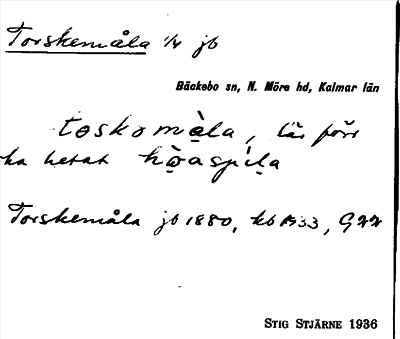 Torskemåla 1/4 jb
Bäckebo sn, N. Möre hd, Kalmar län
toskomạ̀la, lär förr
ha hetat họ̀aspíḷa
Torskemåla jb 1880, kb 1933, G22
STIG STJÄRNE 1936